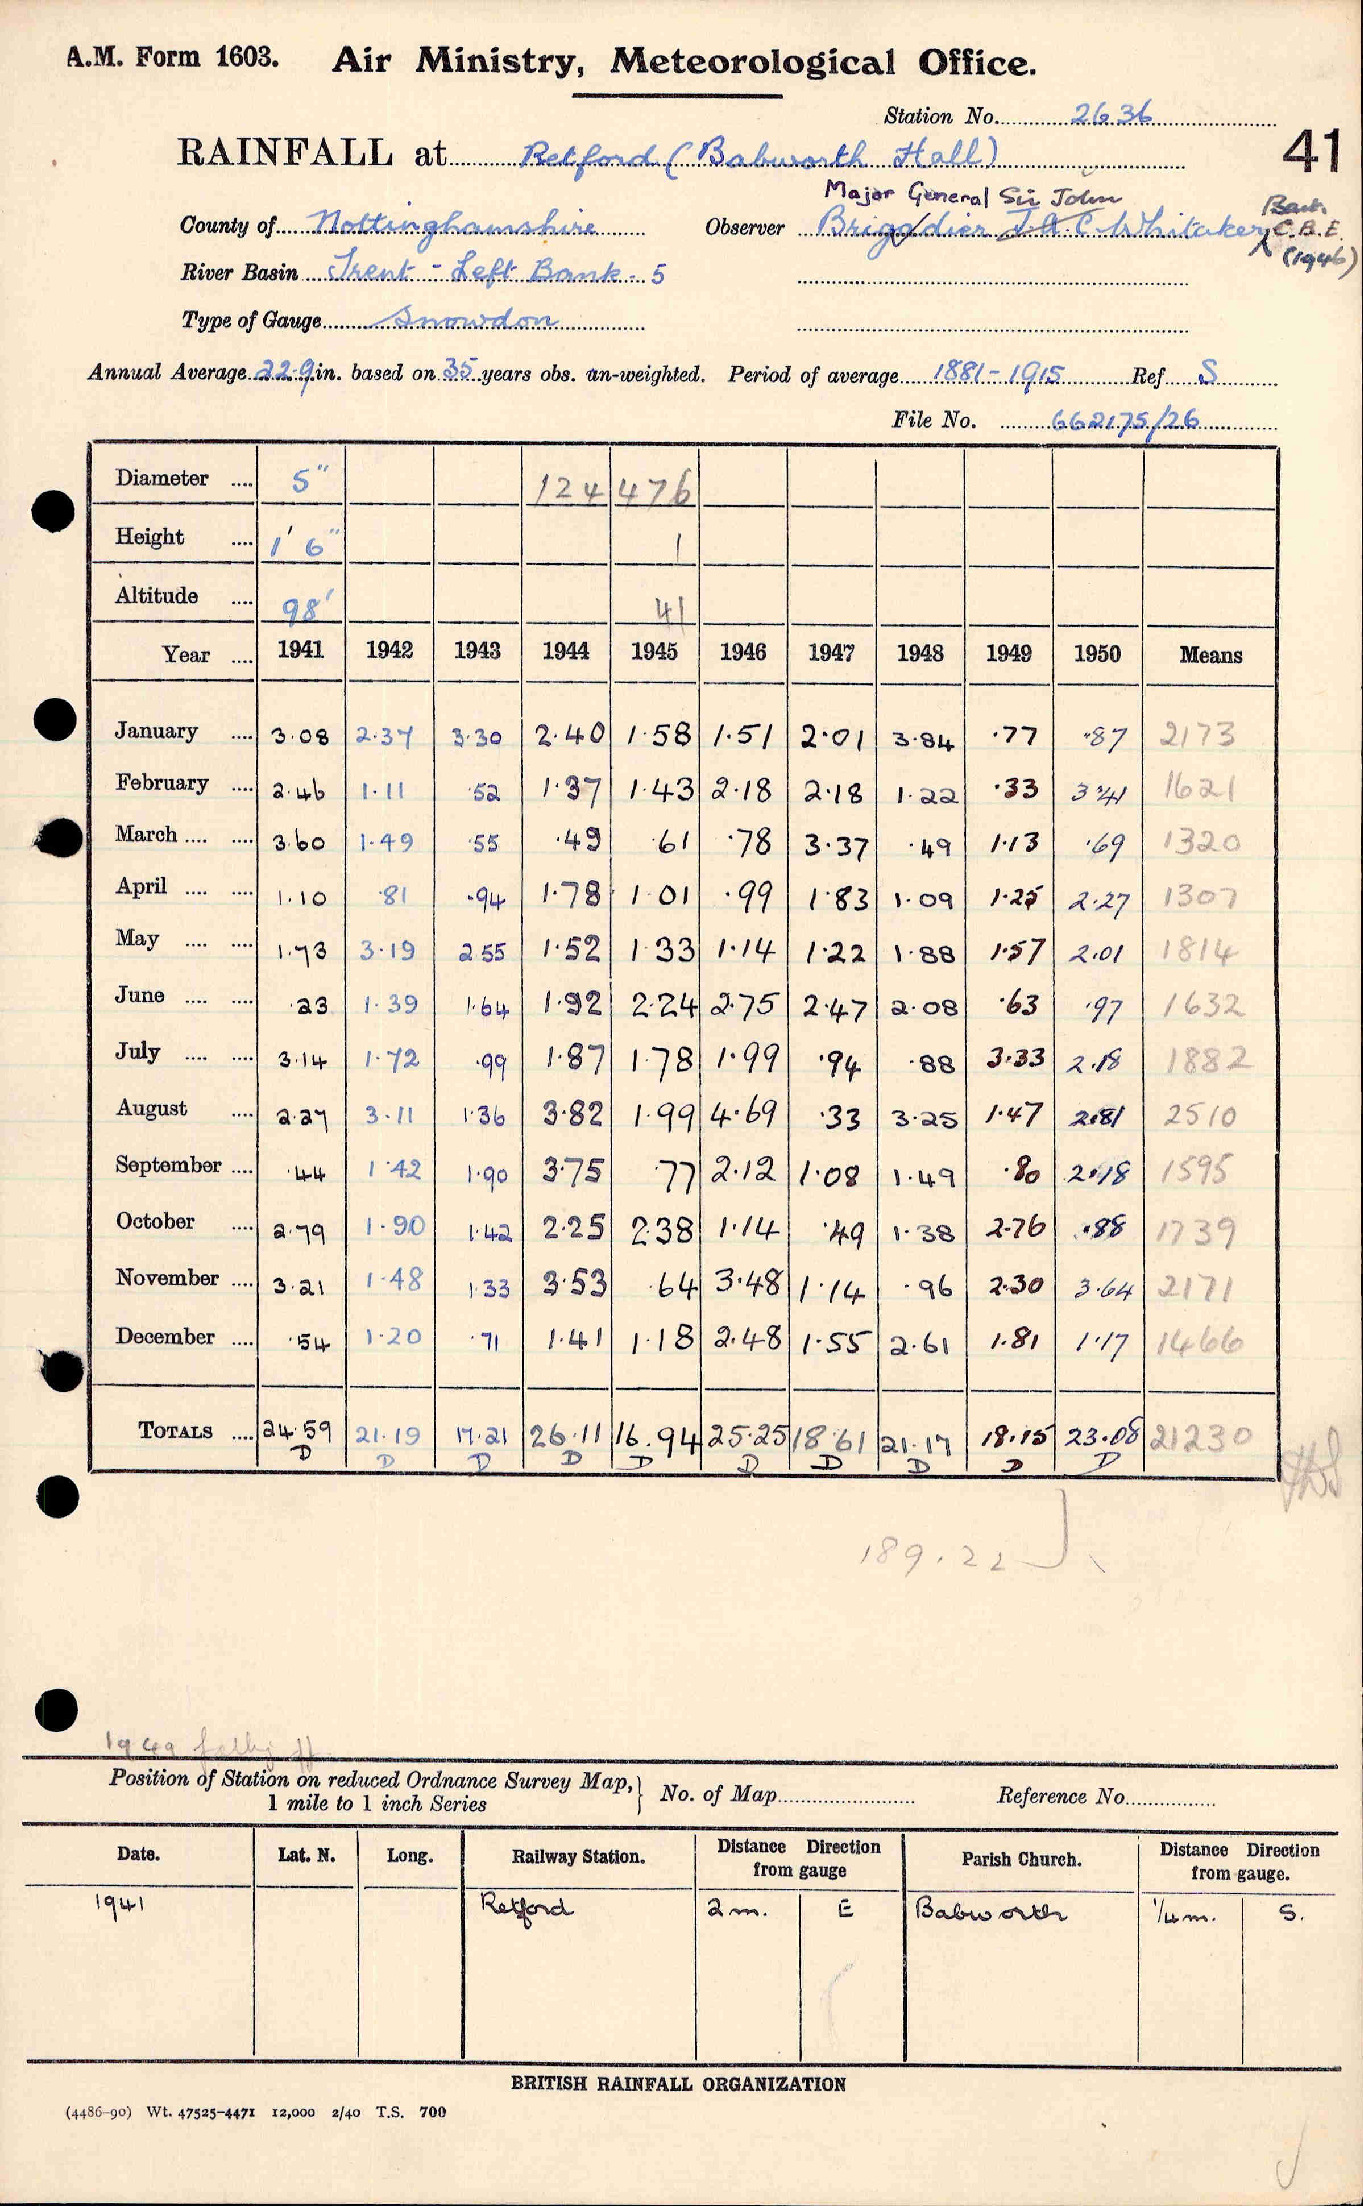 A.M. Form 1603. Air Ministry, Meteorological Office.
Station No. 2636
RAINFALL at Retford (Babworth Hall) 41
Major General Sir John
County of Nottinghamshire Observer Brigadier J. A. C. Whitaker, Bart. C.B.E. (1946)
River Basin Trent - Left Bank - 5
Type of Gauge Snowdon
Annual Average 22.9 in. based on 35 years obs. un-weighted. Period of average 1881-1915 Ref S
File No. 662175/26
Diameter .... 5" 124 476
Height .... 1' 6" 1
Altitude .... 98' 41
Year .... 1941 1942 1943 1944 1945 1946 1947 1948 1949 1950 Means
January .... 3.08 2.37 3.30 2.40 1.58 1.51 2.01 3.84 .77 .87 2173
February .... 2.46 1.11 .52 1.37 1.43 2.18 2.18 1.22 .33 3.41 1621
March .... .... 3.60 1.49 .55 .49 .61 .78 3.37 .49 1.13 .69 1320
April .... .... 1.10 .81 .94 1.78 1.01 .99 1.83 1.09 1.25 2.27 1307
May .... .... 1.73 3.19 2.55 1.52 1.33 1.14 1.22 1.88 1.57 2.01 1814
June .... .... .23 1.39 1.64 1.92 2.24 2.75 2.47 2.08 .63 .97 1632
July .... .... 3.14 1.72 .99 1.87 1.78 1.99 .94 .88 3.33 2.18 1882
August .... 2.27 3.11 1.36 3.82 1.99 4.69 .33 3.25 1.47 2.81 2510
September .... .44 1.42 1.90 3.75 .77 2.12 1.08 1.49 .80 2.18 1595
October .... 2.79 1.90 1.42 2.25 2.38 1.14 .49 1.38 2.76 .88 1739
November .... 3.21 1.48 1.33 3.53 .64 3.48 1.14 .96 2.30 3.64 2171
December .... .54 1.20 .71 1.41 1.18 2.48 1.55 2.61 1.81 1.17 1466
TOTALS .... 24.59 21.19 17.21 26.11 16.94 25.25 18.61 21.17 18.15 23.08 21230
D D D D D D D D D D
189.22
1949
Position of Station on reduced Ordnance Survey Map, 1 mile to 1 inch Series } No. of Map Reference No.
Date. Lat. N. Long. Railway Station. Distance from gauge Direction Parish Church. Distance Direction from gauge.
1941 Retford 2 m. E Babworth 1/4 m. S.
BRITISH RAINFALL ORGANIZATION
(4486-90) Wt. 47525-4471 12,000 2/40 T.S. 700